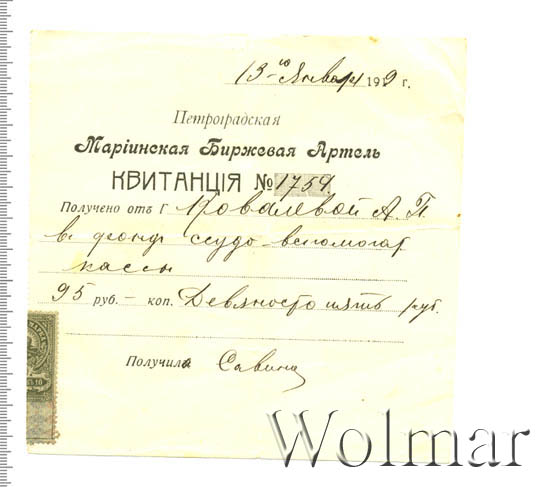 13-го Января 1919 г.
Петроградская
Маріинская Биржевая Артель
КВИТАНЦІЯ № 1759
Получено отъ г Ковалевой А. П.
в фонд ссудо-вспомогат
кассы
95 руб. — коп. Девяносто пять руб.
Получила Савина
10
Wolmar